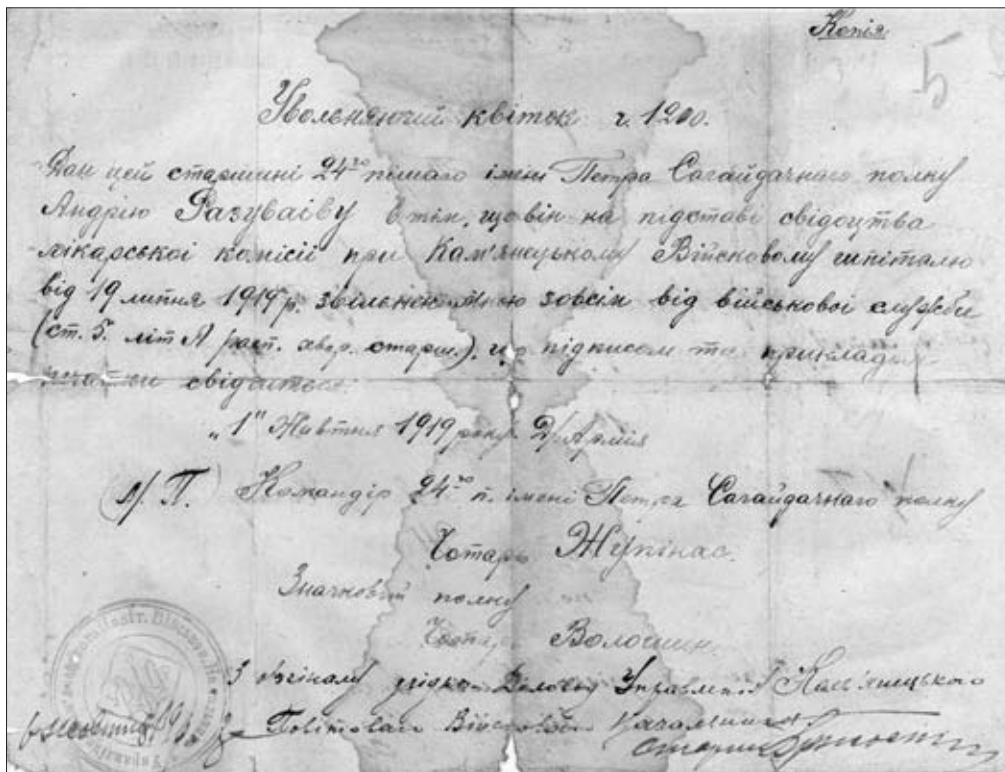 Копія
5
Увольняючий квіток ч. 1200.
Дан цей старшині 24го пішаго імені Петра Сагайдачнаго полку
Андрію Разуваіву в тім, що він на підставі свідоцтва
лікарської комісії при Кам'янецькому Військовому шпіталю
від 19 липня 1919 р. звільнен мною зовсім від військової служби
(ст. 5. літ А расп. хвор. старш.), що підписом та прикладом
печатки свідчиться.
„1" Жовтня 1919 року. Д/Армія
М. П. Командір 24го п. імені Петра Сагайдачнаго полку
Чотарь Жупінас.
Значковий полку
Чотарь Волошин.
З орігіналом згідно: Діловод Управління Кам'янецького
Повітоваго Військового Начальника